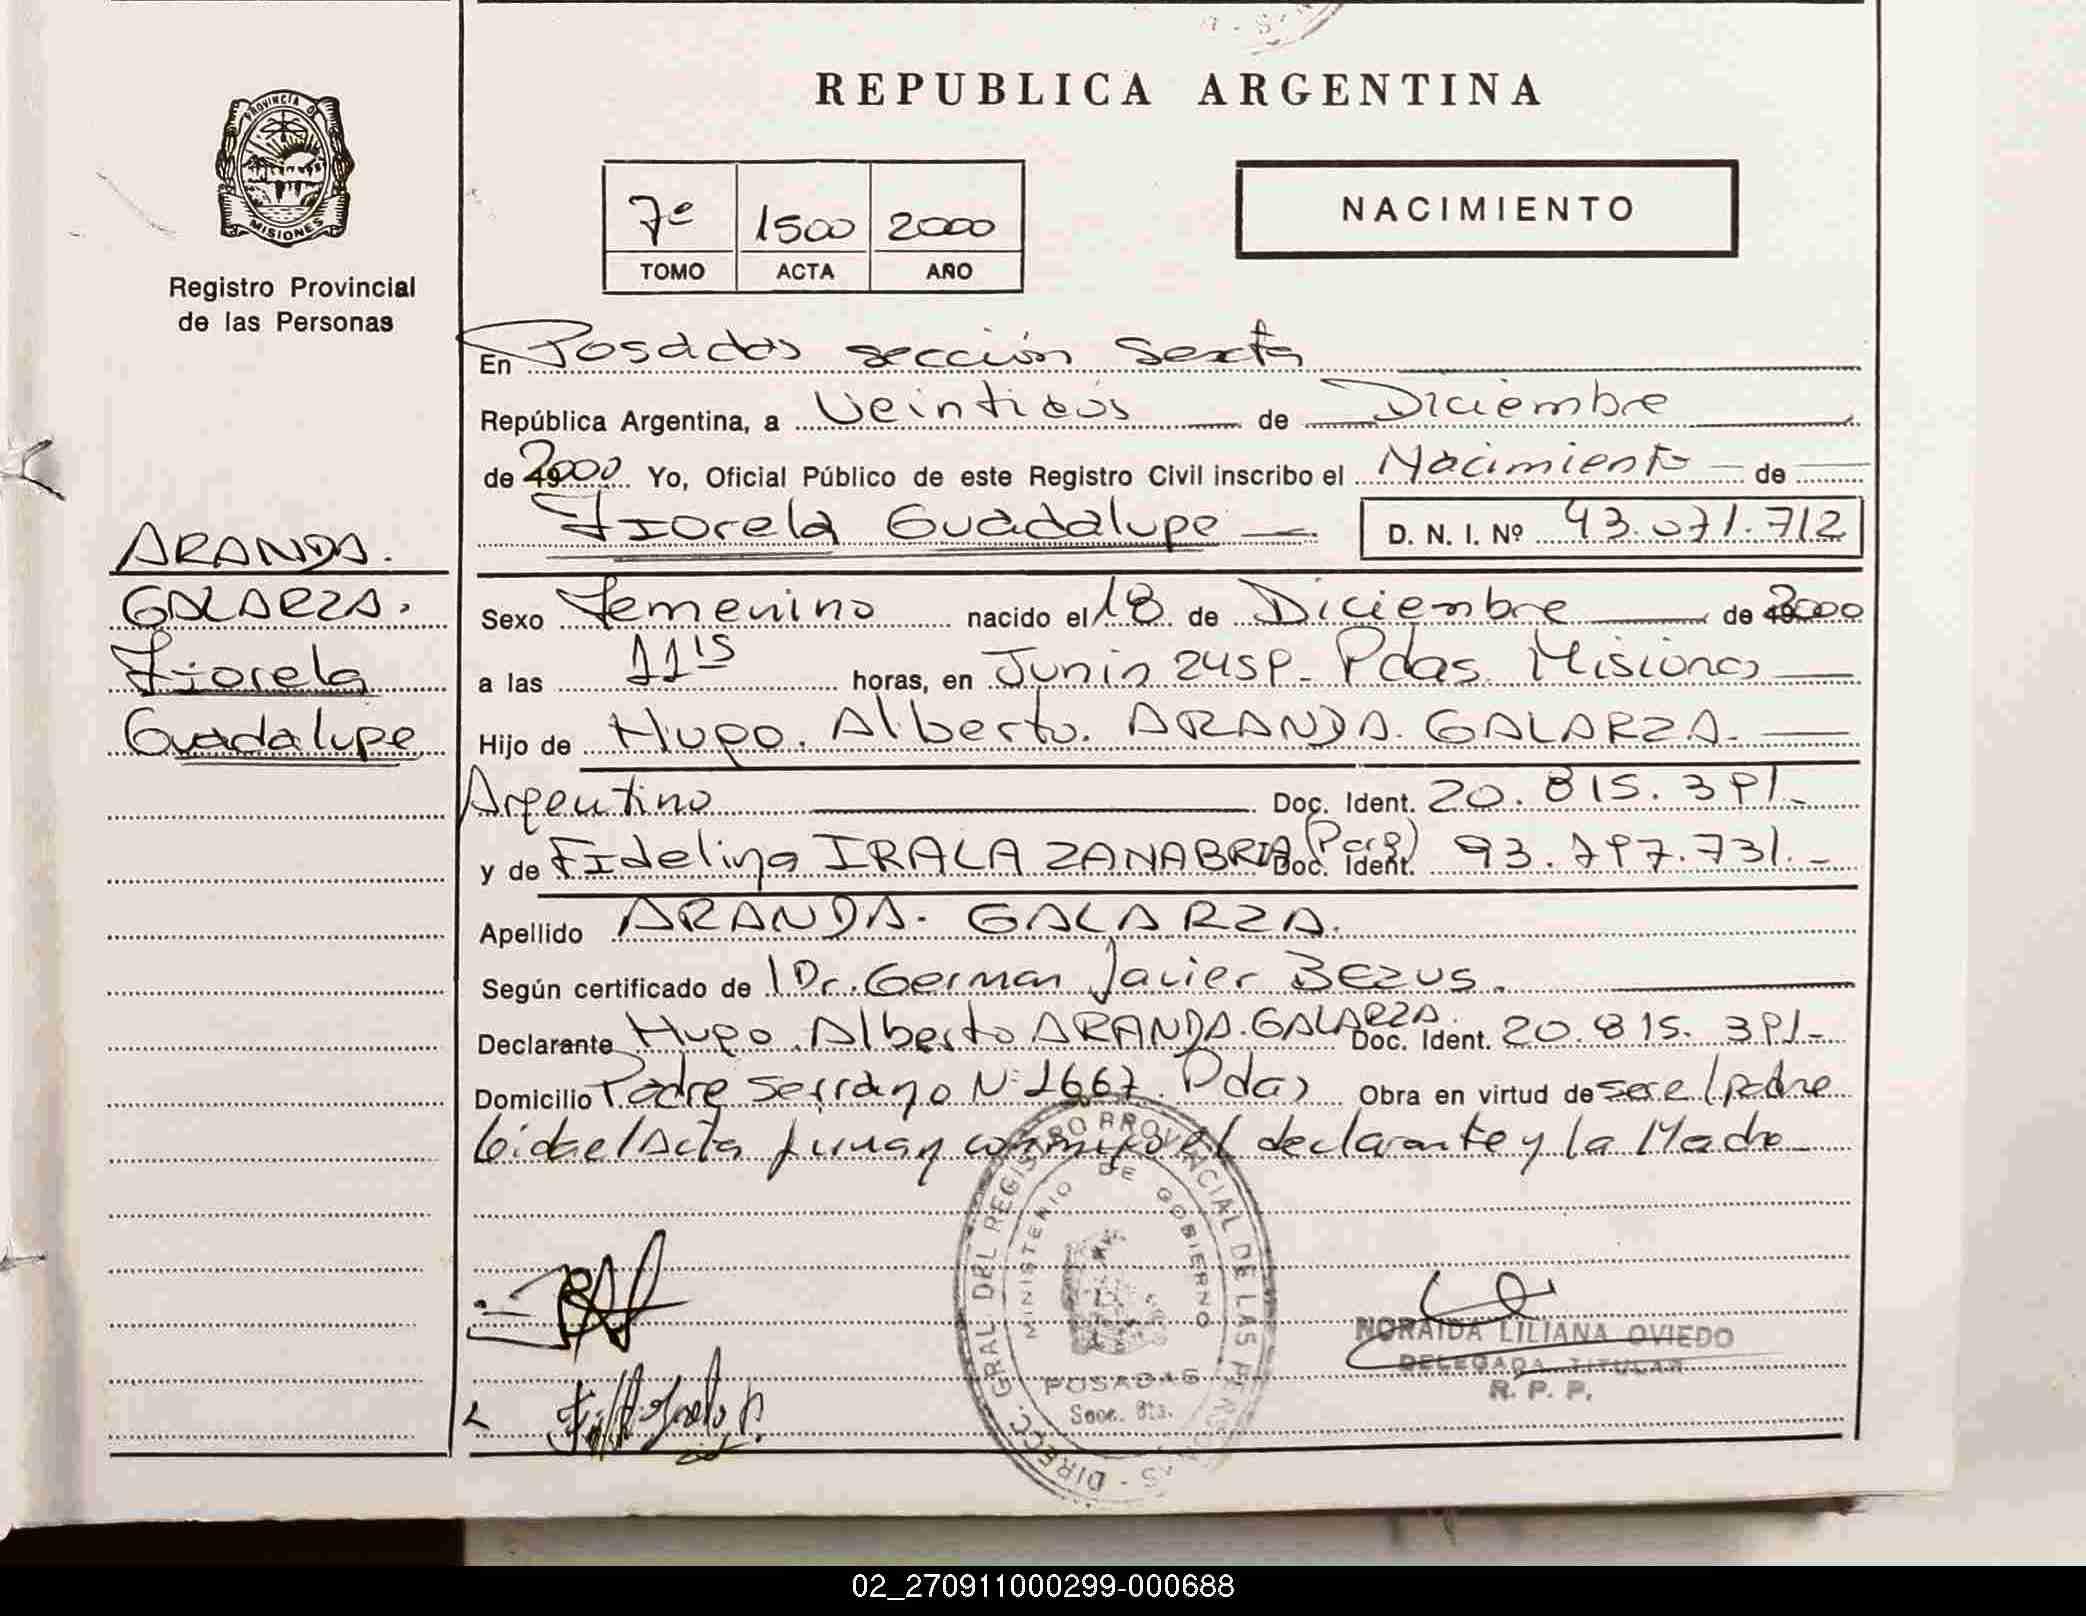 REPUBLICA ARGENTINA
PROVINCIA DE
MISIONES
Registro Provincial
de las Personas
7º 1500 2000
TOMO ACTA AÑO
NACIMIENTO
En Posadas sección Sexta
República Argentina, a Veintidós de Diciembre
de 2000 Yo, Oficial Público de este Registro Civil inscribo el Nacimiento de
Fiorela Guadalupe D. N. I. Nº 43.071.712
ARANDA.
GALARZA.
Fiorela
Guadalupe
Sexo Femenino nacido el 18 de Diciembre de 2000
a las 11 15 horas, en Junin Pdas. Misiones
Hijo de Hugo. Alberto. ARANDA. GALARZA.
Argentino Doc. Ident. 20.815.391.-
y de Fidelina IRALA ZANABRIA (Parg) Doc. Ident. 93.797.731.-
Apellido ARANDA. GALARZA.
Según certificado de l Dr. German Javier Bezus.
Declarante Hugo. Alberto ARANDA. GALARZA. Doc. Ident. 20.815.391-
Domicilio Padre Serrano Nº 1667. Pdas Obra en virtud de ser el padre
leida el Acta firman conmigo el declarante y la Madre
DIRECC. GRAL. DEL REGISTRO PROVINCIAL DE LAS PERSONAS -
MINISTERIO DE GOBIERNO
POSADAS
Secc. 6ta.
NORAIDA LILIANA OVIEDO
DELEGADA TITULAR
R. P. P.
02_270911000299-000688